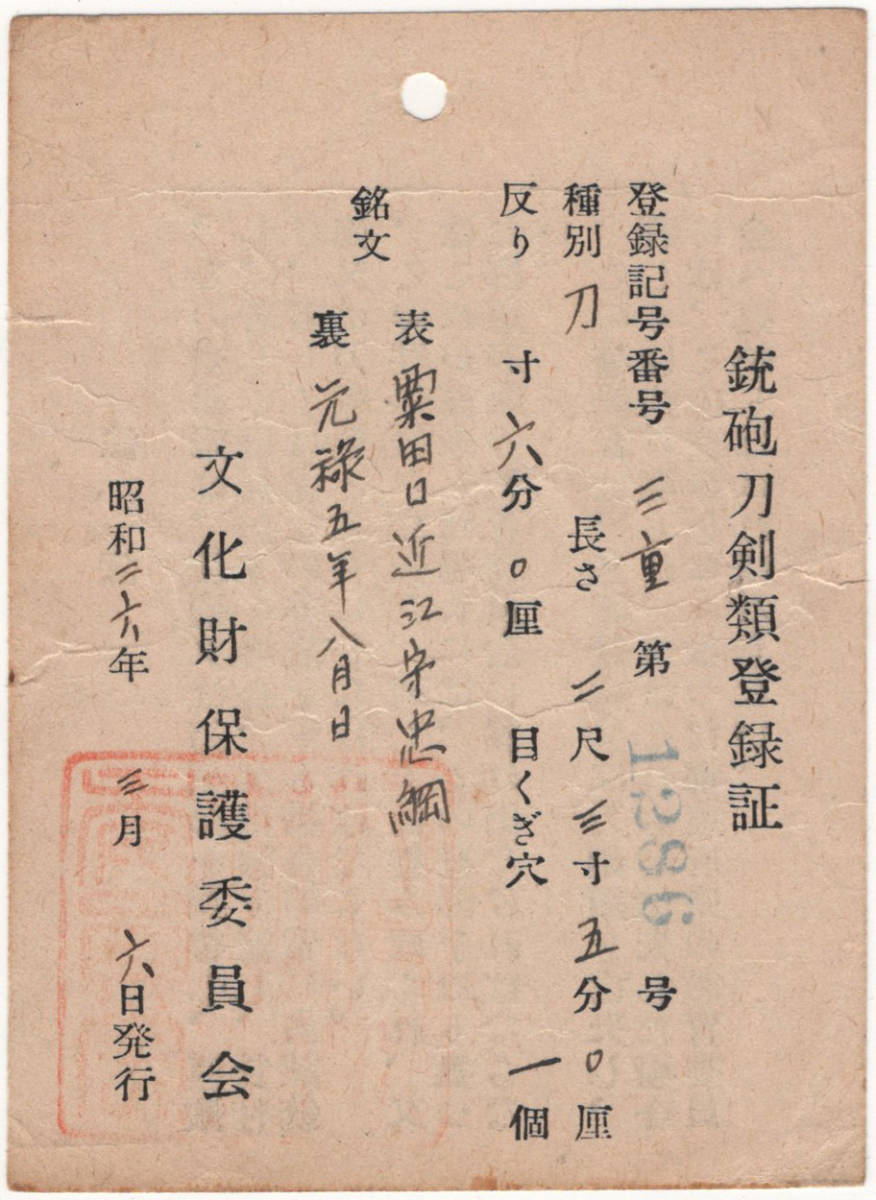 銃砲刀剣類登録証
登録記号番号 三重 第 1286 号
種別 刀 長さ 二尺 三寸 五分 〇厘
反り 寸 六分 〇厘 目くぎ穴 一個
銘文
表 粟田口近江守忠綱
裏 元禄五年八月日
文化財保護委員会
昭和二六年 三月 六日発行